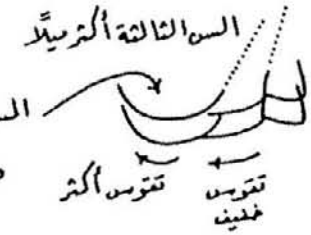 السن الثالثة أكثر ميلًا
تقوس أكثر
تقوس
خفيف